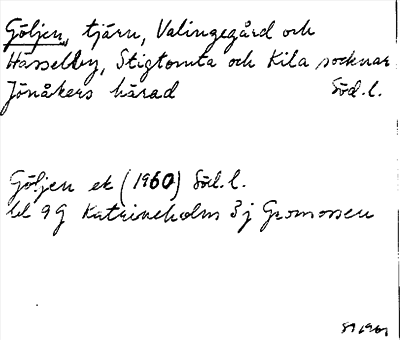 Göljen, tjärn, Valingegård och
Hässelby, Stigtomta och Kila socknar
Jönåkers härad Söd.l.
Göljen ek (1960) Söd.l.
bl 9G Katrineholm 3j Gromossen